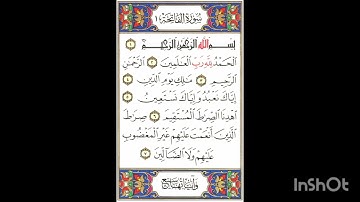 سُورَةُ الْفَاتِحَةِ ١
بِسْمِ اللَّهِ الرَّحْمَٰنِ الرَّحِيمِ ١
الْحَمْدُ لِلَّهِ رَبِّ الْعَالَمِينَ ٢ الرَّحْمَٰنِ
الرَّحِيمِ ٣ مَالِكِ يَوْمِ الدِّينِ ٤
إِيَّاكَ نَعْبُدُ وَإِيَّاكَ نَسْتَعِينُ ٥
اهْدِنَا الصِّرَاطَ الْمُسْتَقِيمَ ٦ صِرَاطَ
الَّذِينَ أَنْعَمْتَ عَلَيْهِمْ غَيْرِ الْمَغْضُوبِ
عَلَيْهِمْ وَلَا الضَّالِّينَ ٧
InShOt